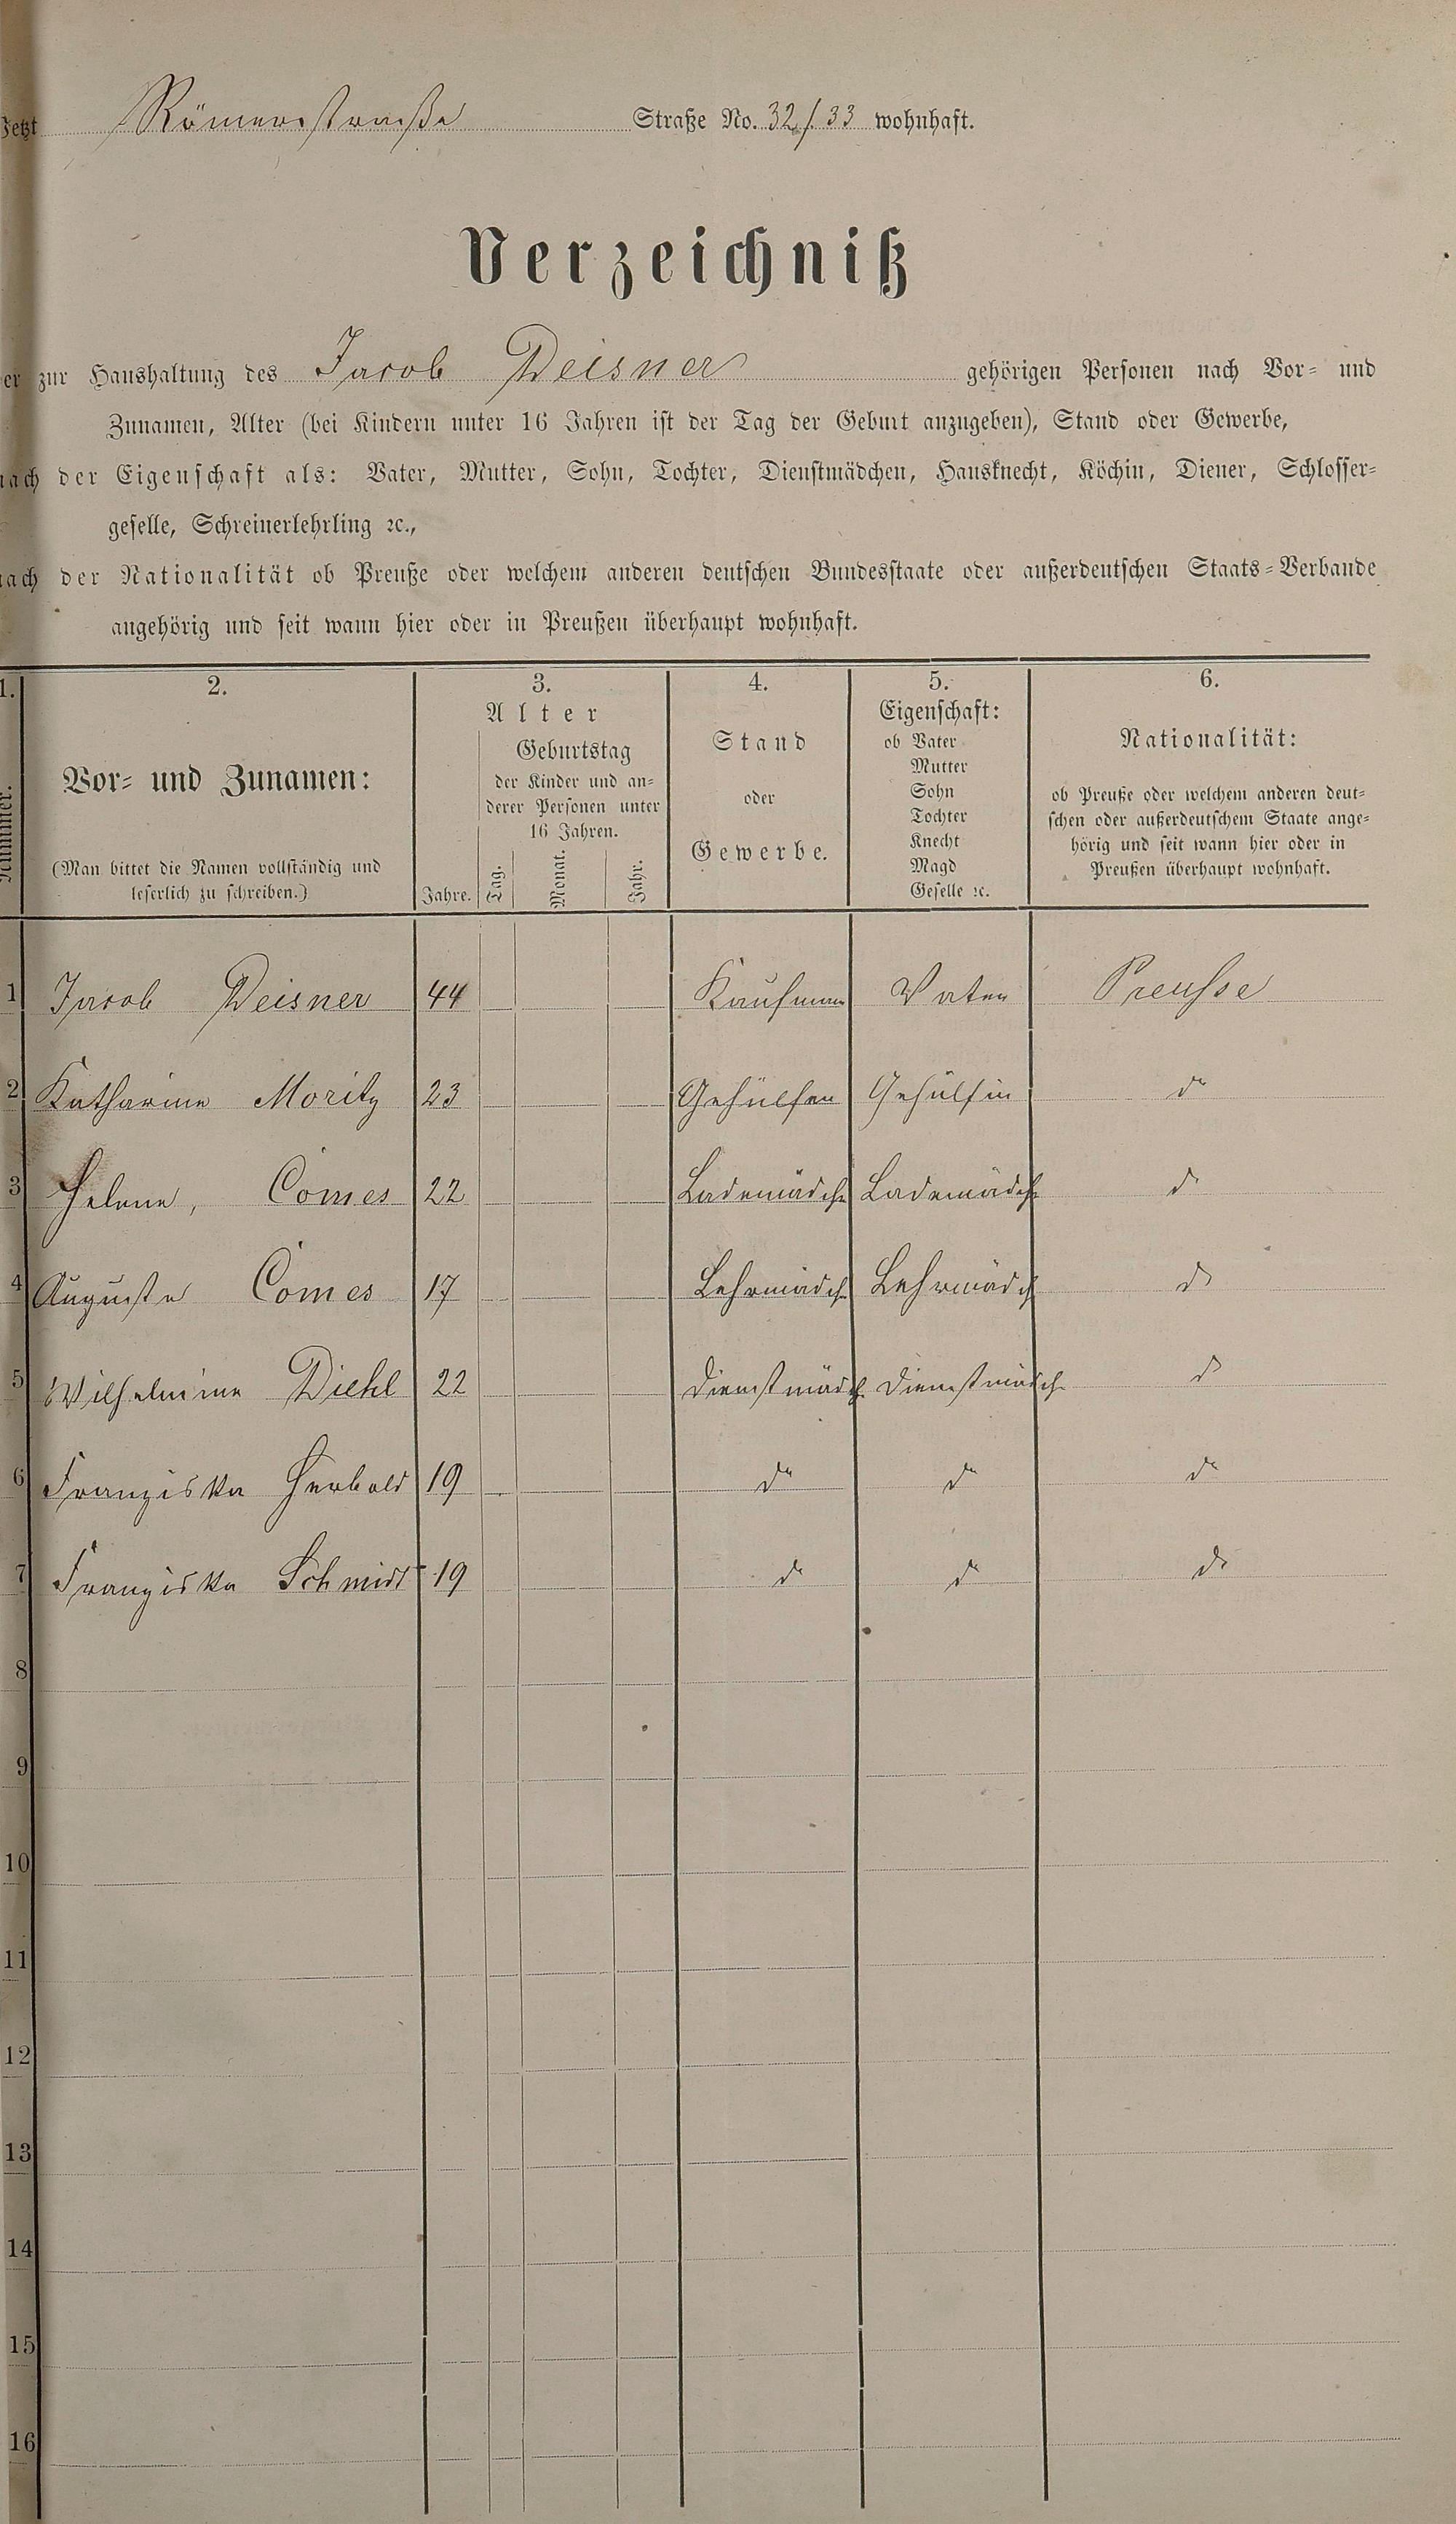 Jetzt Römerstraße Straße No. 32/33 wohnhaft.
Verzeichniß
er zur Haushaltung des Jacob Deisner gehörigen Personen nach Vor- und
Zunamen, Alter (bei Kindern unter 16 Jahren ist der Tag der Geburt anzugeben), Stand oder Gewerbe,
nach der Eigenschaft als: Vater, Mutter, Sohn, Tochter, Dienstmädchen, Hausknecht, Köchin, Diener, Schlosser-
geselle, Schreinerlehrling ꝛc.,
nach der Nationalität ob Preuße oder welchem anderen deutschen Bundesstaate oder außerdeutschen Staats-Verbande
angehörig und seit wann hier oder in Preußen überhaupt wohnhaft.
1. 2. 3. 4. 5. 6.
Nummer.
Vor- und Zunamen:
(Man bittet die Namen vollständig und
leserlich zu schreiben.)
Alter
Jahre.
Geburtstag
der Kinder und an-
derer Personen unter
16 Jahren.
Tag. Monat. Jahr.
Stand
oder
Gewerbe.
Eigenschaft:
ob Vater
Mutter
Sohn
Tochter
Knecht
Magd
Geselle ꝛc.
Nationalität:
ob Preuße oder welchem anderen deut-
schen oder außerdeutschem Staate ange-
hörig und seit wann hier oder in
Preußen überhaupt wohnhaft.
1 Jacob Deisner 44 Kaufmann Vater Preusse
2 Katharine Moritz 23 Gehülfen Gehülfin do
3 Helene, Comes 22 Lademädch Lademädch do
4 Auguste Comes 17 Lehrmädch Lehrmädch do
5 Wilhelmine Diehl 22 Dienstmädch Dienstmädch do
6 Franziska Herbold 19 do do do
7 Franziska Schmidt 19 do do do
8
9
10
11
12
13
14
15
16